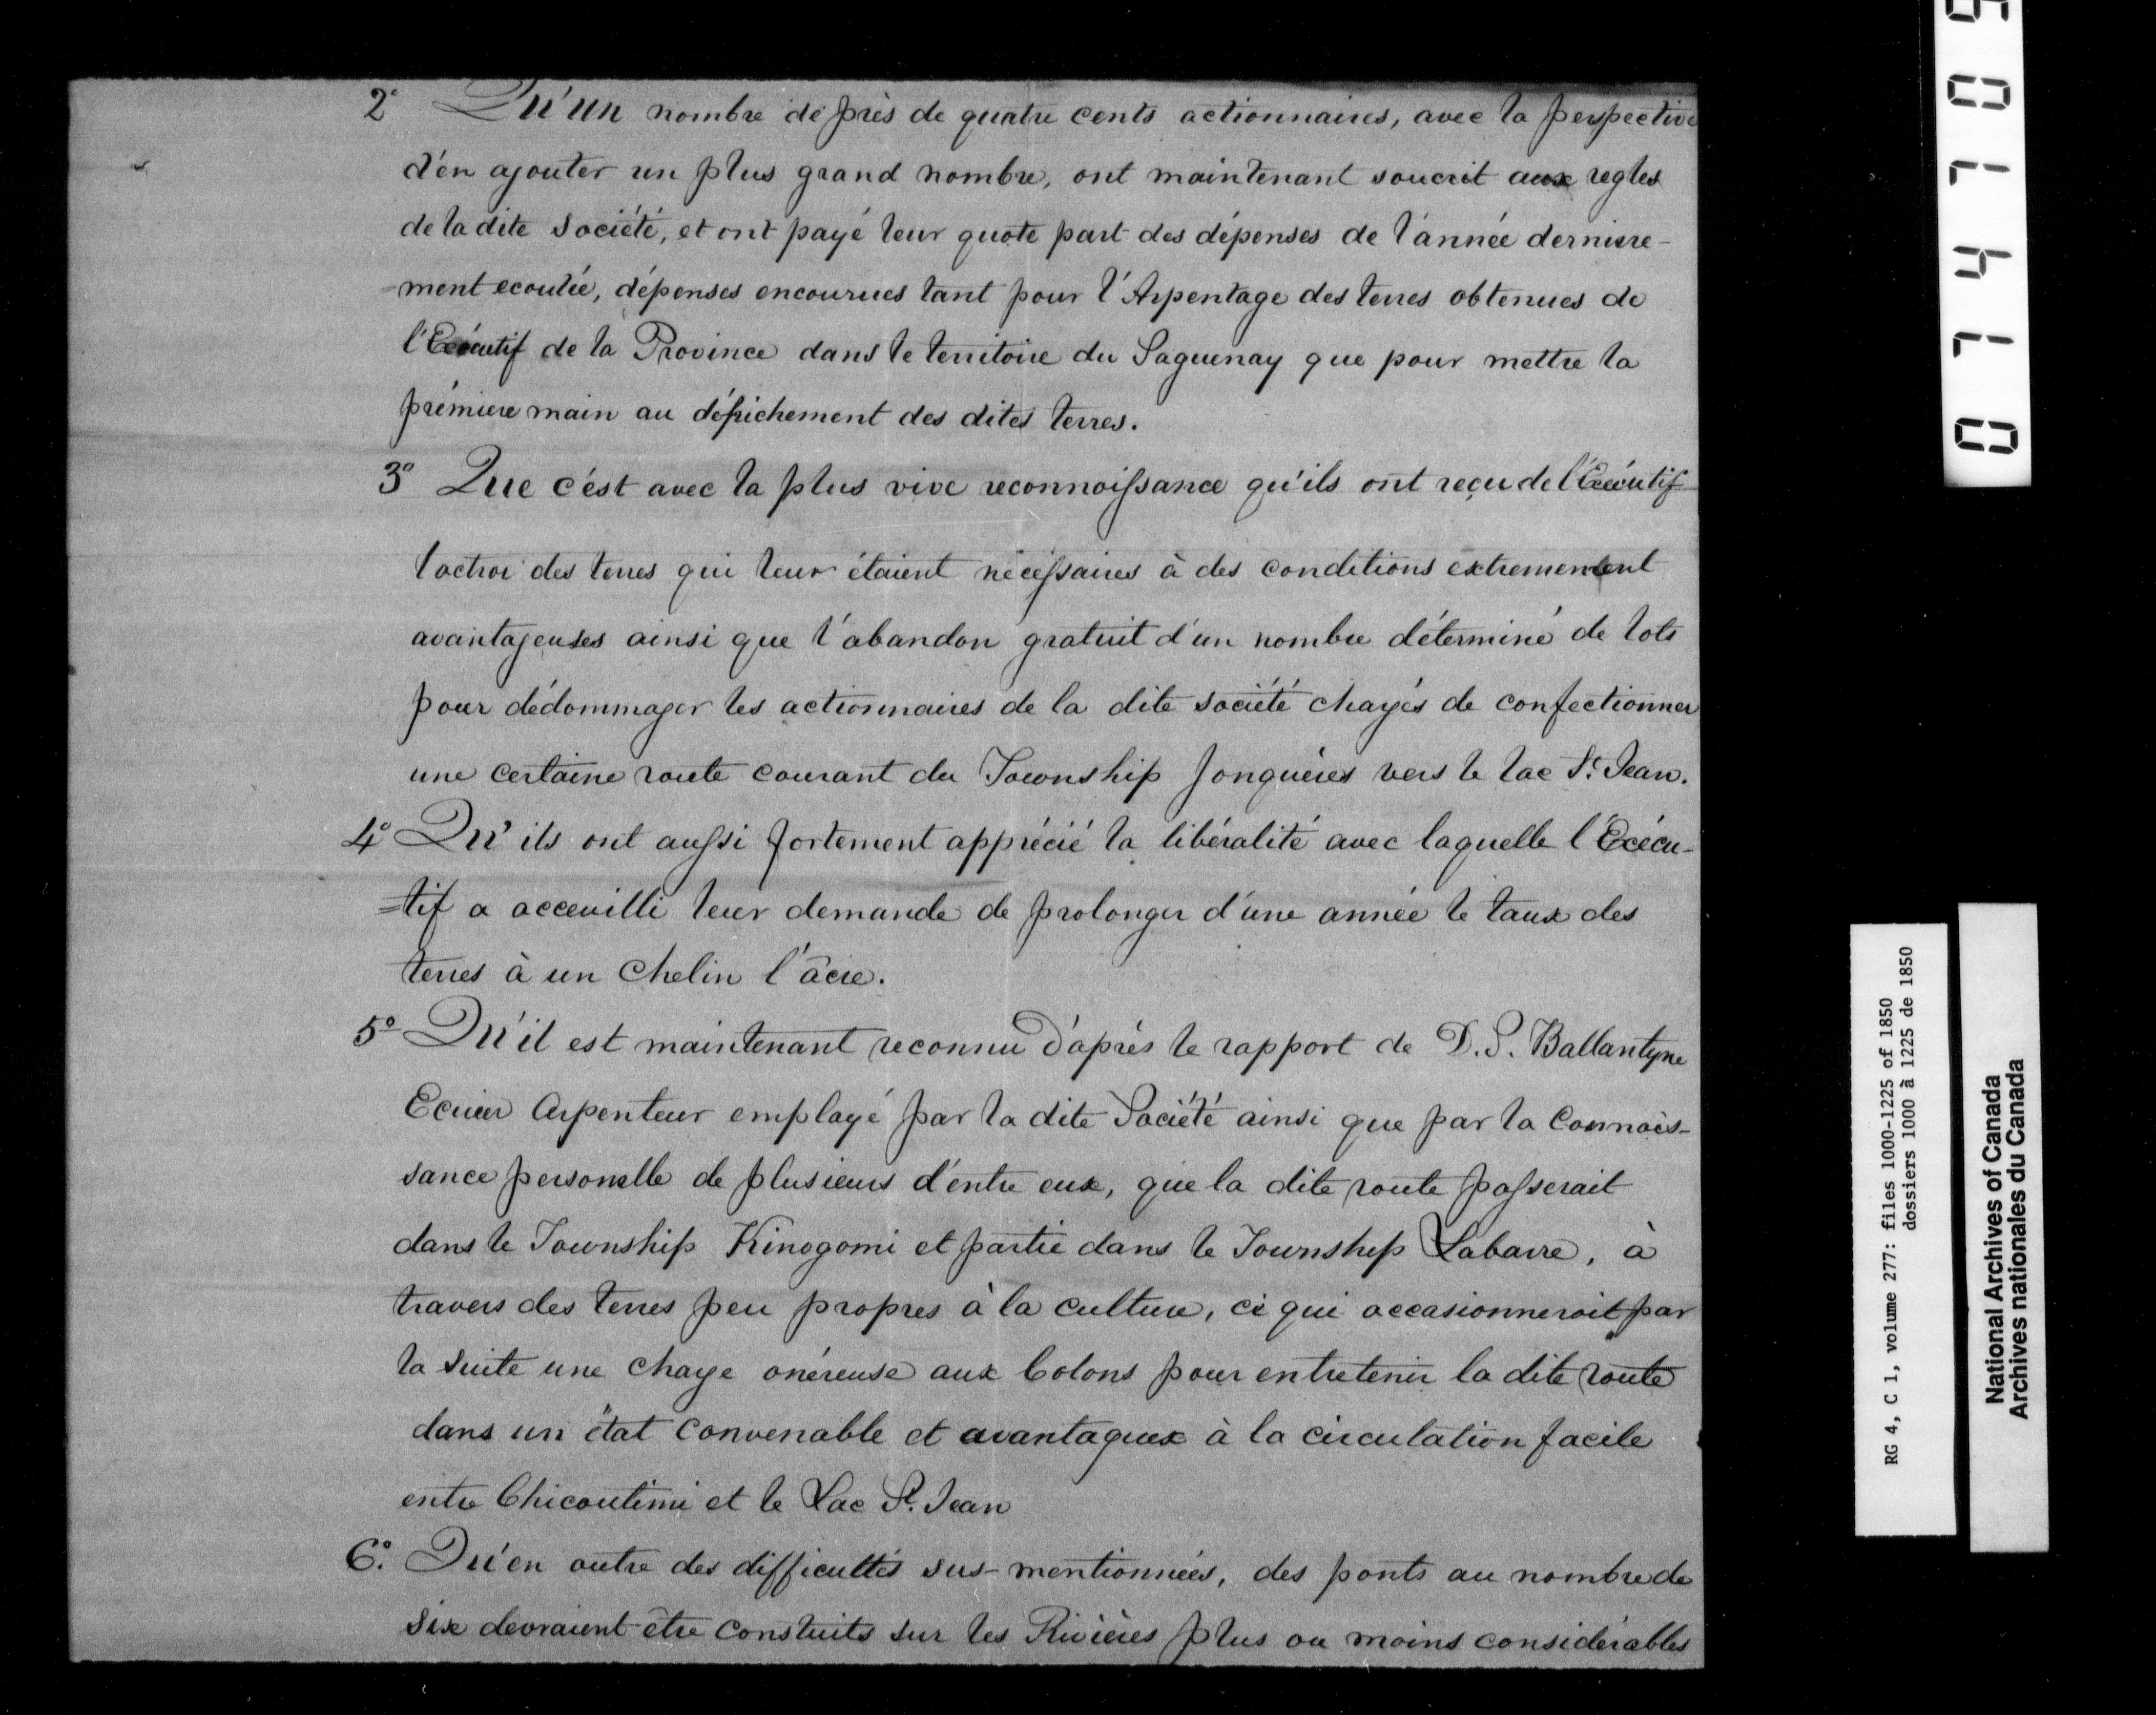 2° Qu'un nombre de près de quatre cents actionnaires, avec la perspective
d'en ajouter un plus grand nombre, ont maintenant soucrit aux regles
de la dite Société, et ont payé leur quote part des dépenses de l'année derniere-
-ment ecoulée, dépenses encourues tant pour l'Arpentage des terres obtenues de
l'Exécutif de la Province dans le territoire du Saguenay que pour mettre la
prémiere main au défrichement des dites terres.
3° Que c'est avec la plus vive reconnoissance qu'ils ont reçu de l'Exécutif
l'octroi des terres qui leur étaient nécéssaires à des conditions extremement
avantajeuses ainsi que l'abandon gratuit d'un nombre déterminé de lots
pour dédommager les actionnaires de la dite société chargés de confectionner
une certaine route courant du Township Jonquières vers le lac St. Jean.
4° Qu'ils ont aussi fortement apprécié la libéralité avec laquelle l'Exécu-
=tif a acceuilli leur demande de prolonger d'une année le taux des
terres à un Chelin l'âcre.
5° Qu'il est maintenant reconnu d'après le rapport de D.S. Ballantyne
Ecuier Arpenteur employé par la dite Société ainsi que par la Connais-
sance personelle de plusieurs d'entre eux, que la dite route passerait
dans le Township Kinogomi et partie dans le Township Labarre, à
travers des terres peu propres à la culture, ce qui occasionneroit par
la suite une charge onéreuse aux Colons pour entretenir la dite route
dans un état convenable et avantageux à la circulation facile
entre Chicoutimi et le Lac St. Jean
6°. Qu'en outre des difficultés sus-mentionnées, des ponts au nombre de
six devraient être construits sur les Rivières plus ou moins considérables
07471
RG 4, C 1, volume 277: files 1000-1225 of 1850
dossiers 1000 à 1225 de 1850
National Archives of Canada
Archives nationales du Canada